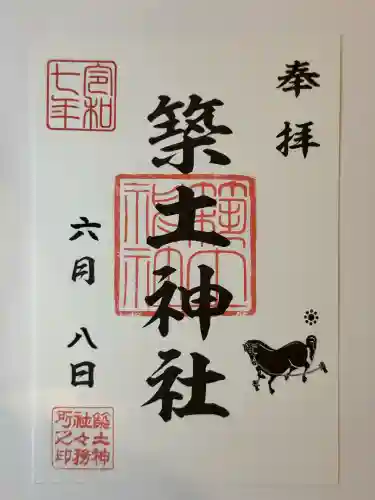 奉拝
築土神社
令和
七年
六月八日
築土神
社々務
所之印